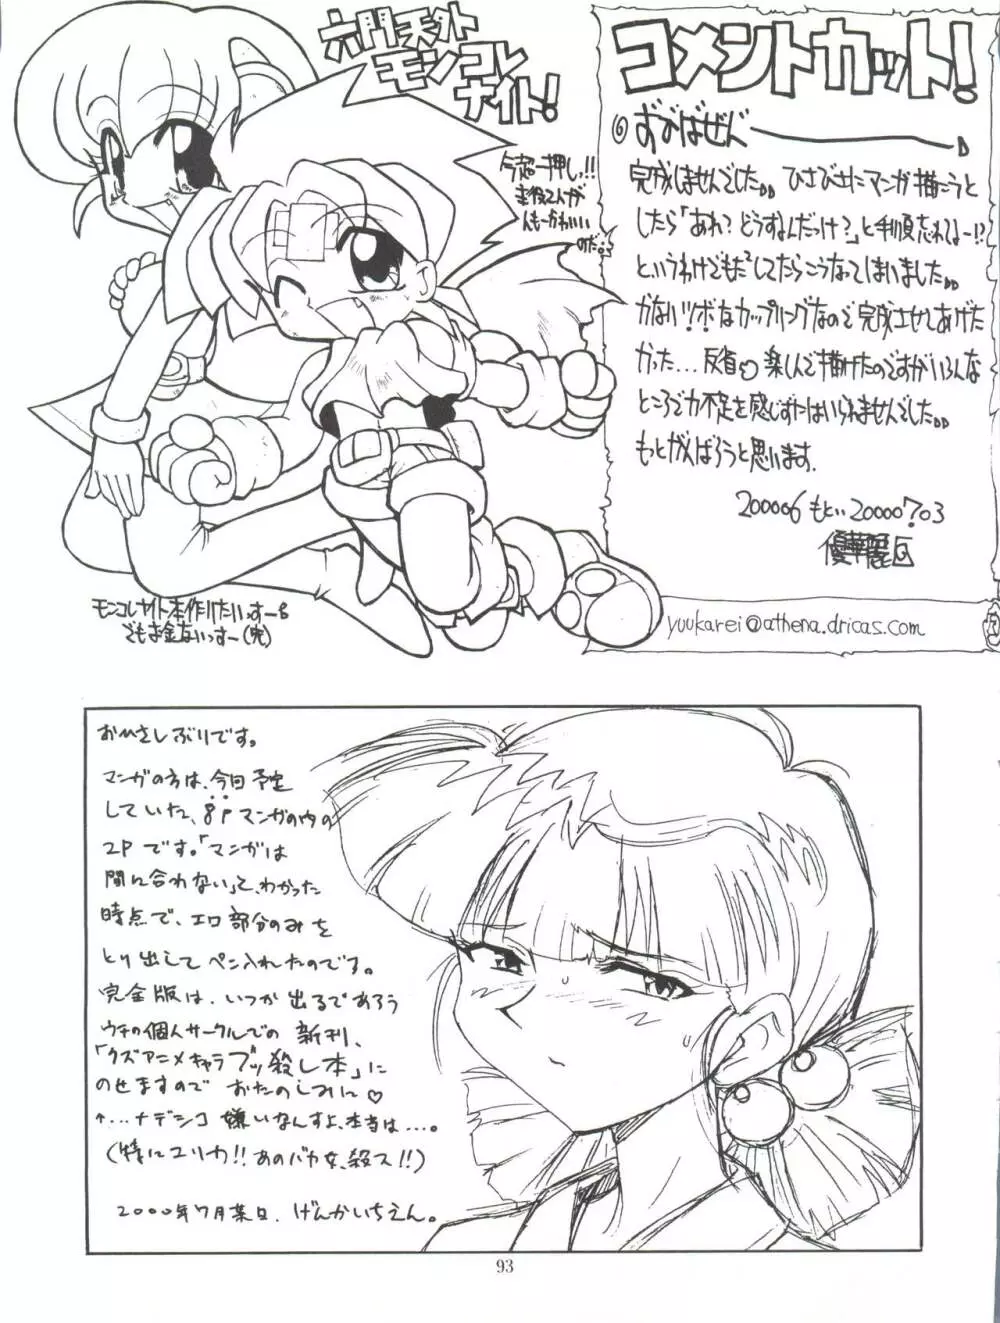 六門天外
モンコレ
ナイト!
今超一押し!!
主役2人が
んもーかわいい
のだ。
コメントカット!
完成しませんでした。ひさびさにマンガ描こうと
したら「あれ?どうすんだっけ?」と手順忘れてよー!?
というわけでもた²してたらこうなってしまいました。
かなりツボなカップリングなので完成させてあげた
かった…反省 楽しんで描けたのですがいろんな
ところで力不足を感じずにはいられませんでした。
もっとがんばろうと思います.
200006 もとい 20000703
優華麗
yuukarei@athena.dricas.com
モンコレナイト本作りたいっすー
でもお金ないっすー(完)
おひさしぶりです。
マンガの方は、今回予定
していた、8Pマンガの内の
2Pです。「マンガは
間に合わない」て、わかった
時点で、エロ部分のみを
とり出してペン入れたのです。
完全版は、いつか出るであろう
ウチの個人サークルでの新刊、
「クズアニメキャラブッ殺し本」に
のせますので おたのしみに♡
↑…ナデシコ嫌いなんすよ、本当は…。
(特にユリカ!!あのバカ女、殺ス!!)
2000年7月某日、げんかいちえん。
93